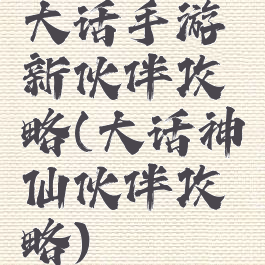 大话手游
新伙伴攻
略(大话神
仙伙伴攻
略)